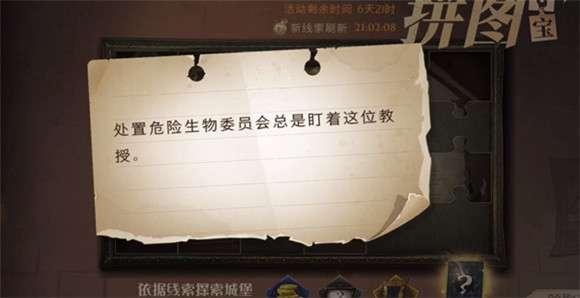 活动剩余时间 6天21时
新线索刷新 21:02:08
拼图
寻宝
处置危险生物委员会总是盯着这位教
授。
依据线索探索城堡